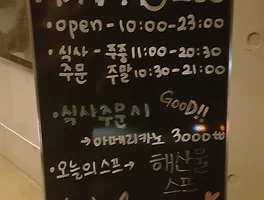 •open - 10:00-23:00
•식사 - 주중 11:00-20:30
주문 주말 10:30-21:00
•식사주문시 GOOD!!
→아메리카노 3000
•오늘의스프→ 해산물
스프